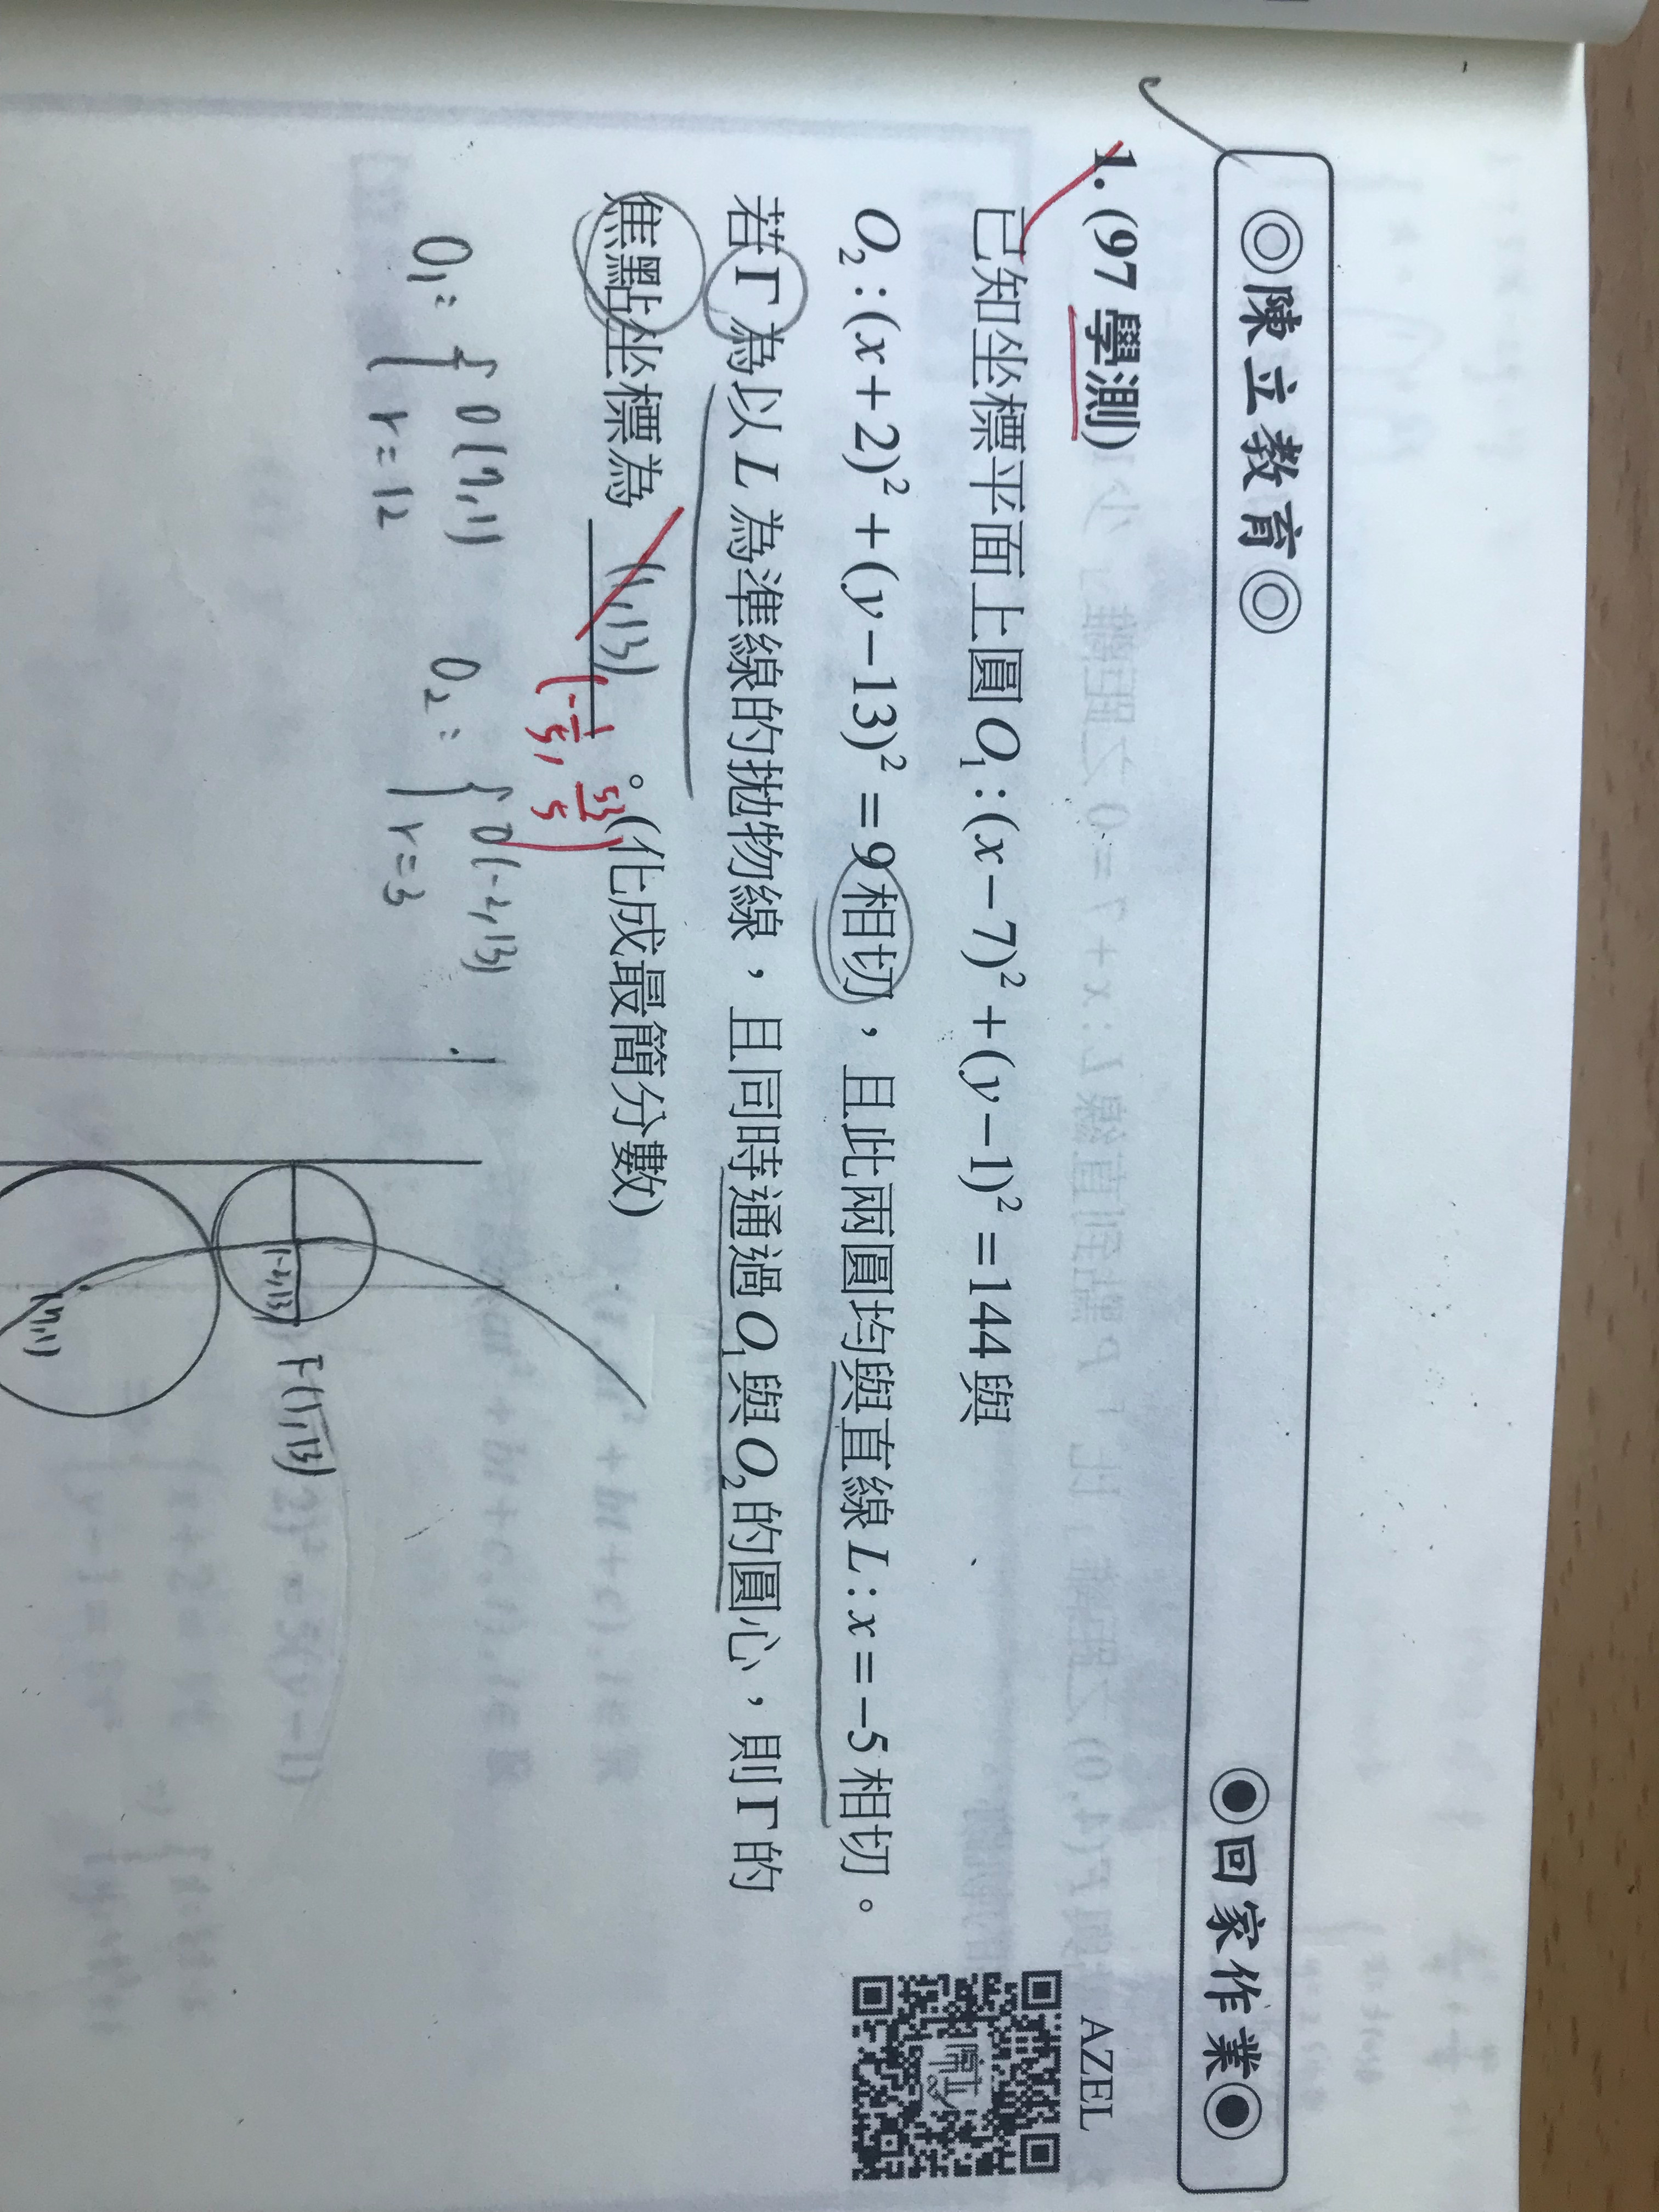 ◎陳立教育◎ ◉回家作業◉
1. (97 學測) AZEL
已知坐標平面上圓 O₁ : (x−7)² + (y−1)² = 144 與
O₂ : (x+2)² + (y−13)² = 9 相切,且此兩圓均與直線 L : x = −5 相切。
若 Γ 為以 L 為準線的拋物線,且同時通過 O₁ 與 O₂ 的圓心,則 Γ 的
焦點坐標為 (1,13) 。(化成最簡分數)
(-1/5, 53/5)
O₁ = { O(7,1)
r=12
O₂ : { O(-2,13)
r=3
(-2,13) F(1,13)
(7,1)